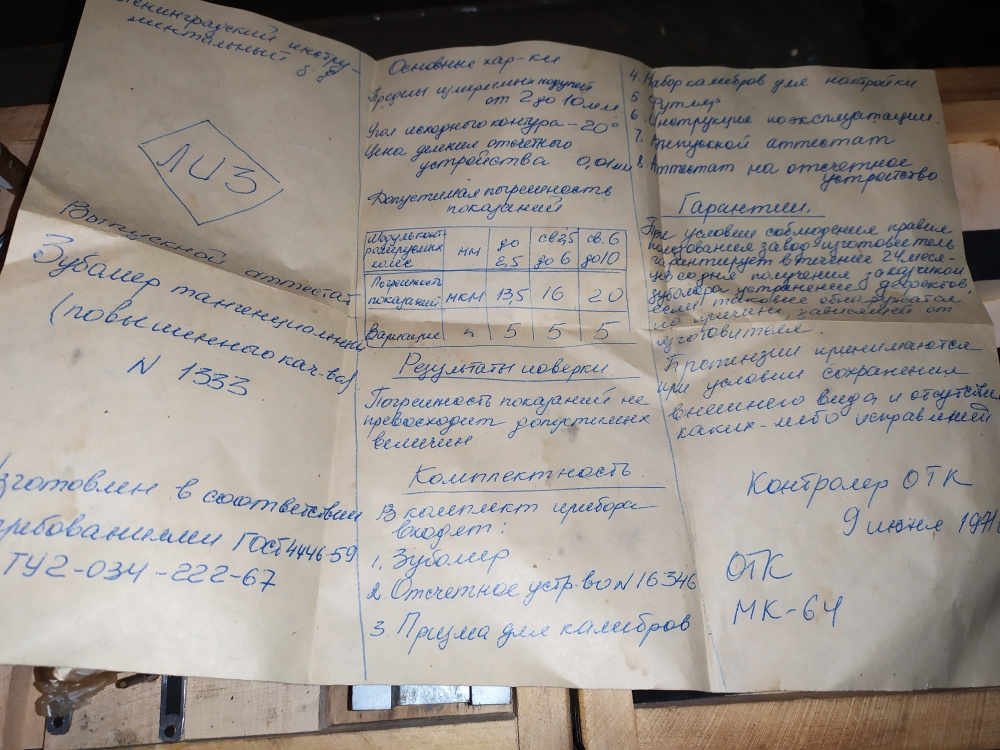 Ленинградский инстру-
ментальный з-д
ЛИЗ
Выпускной аттестат
Зубомер тангенциальный
(повышенного кач-ва)
N 1333
Изготовлен в соответствии
требованиями ГОСТ 4446-59
ТУ2-034-222-67
Основные хар-ки
Пределы измеряемых модулей
от 2 до 10 мм
Угол исходного контура - 20°
Цена деления отсчетного
устройства 0,01мм
Допустимая погрешность
показаний
Модуль конт-
ролируемых
колес
мм
до
2,5
св 2,5
до 6
св. 6
до 10
Погрешность
показаний
мкм
13,5
16
20
Вариация
"
5
5
5
Результаты поверки
Погрешность показаний не
превосходит допустимых
величин
Комплектность
В комплект прибора
входят:
1. Зубомер
2. Отсчетное устр-во N 16346
3. Призма для калибров
4. Набор калибров для настройки
5 Футляр
6. Инструкция по эксплуатации.
7. Выпускной аттестат
8. Аттестат на отсчетное
устройство
Гарантии.
При условии соблюдения правил
пользования завод-изготовитель
гарантирует в течение 24 меся-
цев со дня получения заказчиком
зубомера устранение дефектов,
если таковые обнаружатся
по причине, зависящей от
изготовителя.
Претензии принимаются
при условии сохранения
внешнего вида и отсутствия
каких-либо исправлений
Контролер ОТК
9 июня
ОТК
МК-64